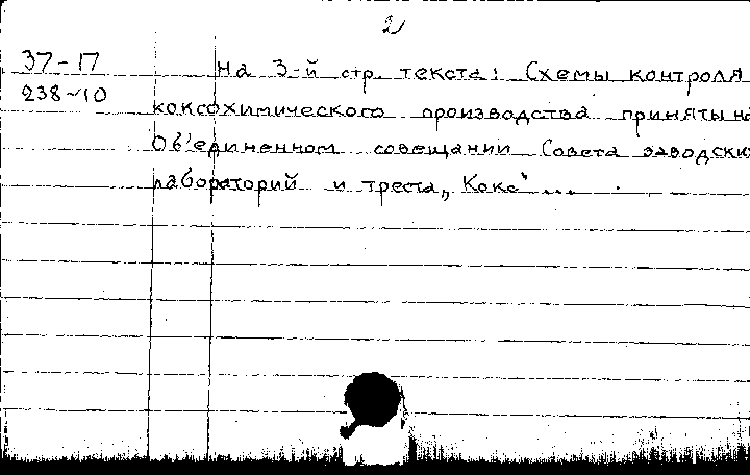 2
37-17 На 3-й стр. текста: Схемы контроля
238-10 коксохимического производства приняты на
Об'единенном совещании Совета заводских
лабораторий и треста „Кокс“ ... .